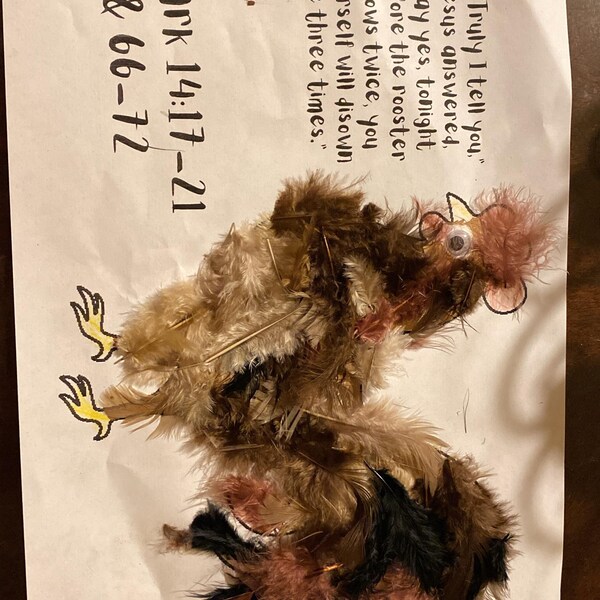 "Truly I tell you,"
esus answered,
ay yes, tonight
fore the rooster
ows twice, you
rself will disown
e three times."
ark 14:17-21
& 66-72